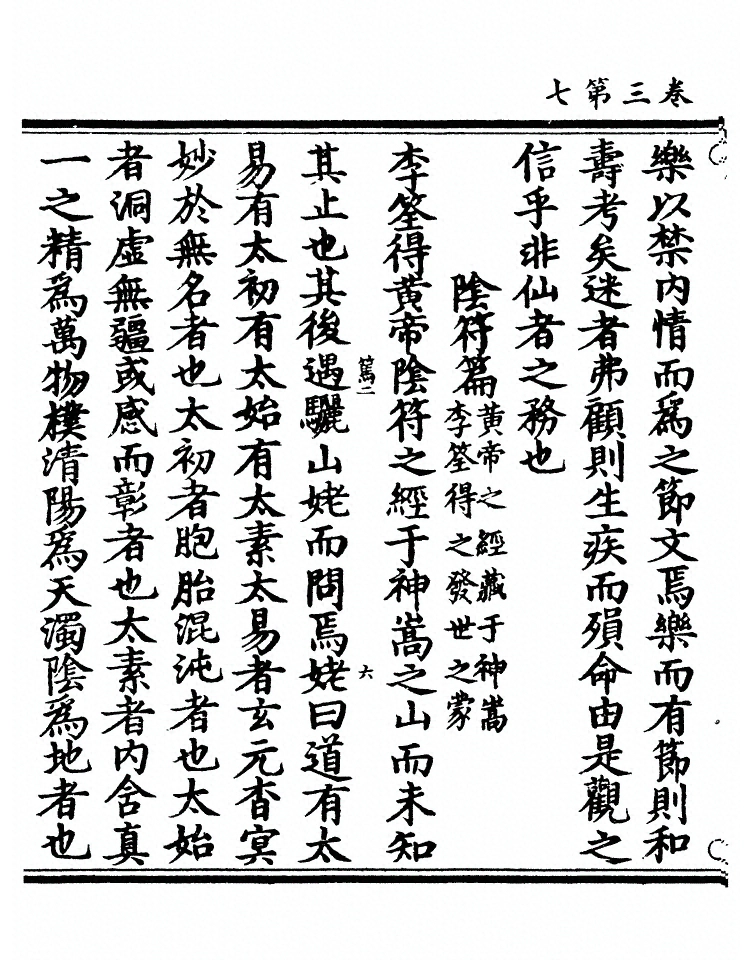 卷三第七
樂以禁内情而爲之節文焉樂而有節則和
壽考矣迷者弗顧則生疾而殞命由是觀之
信乎非仙者之務也
陰符篇
黄帝之經藏于神嵩
李筌得之發世之蒙
李筌得黄帝陰符之經于神嵩之山而未知
篤二
六
其止也其後遇驪山姥而問焉姥曰道有太
易有太初有太始有太素太易者玄元杳冥
妙於無名者也太初者胞胎混沌者也太始
者洞虛無疆或感而彰者也太素者内含真
一之精爲萬物樸清陽爲天濁陰爲地者也